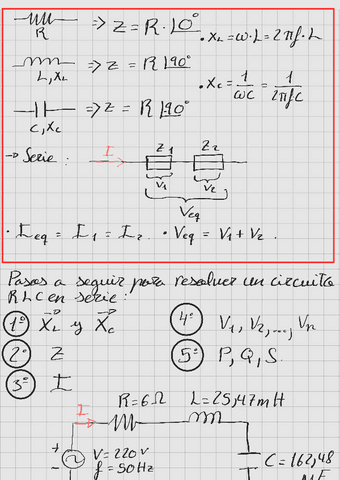 R => Z = R·|0°
·X_L = ω·L = 2πf·L
L, X_L => Z = R |90°
·X_C = 1/ωC = 1/2πfC
C, X_C => Z = R |90°
→ Serie:
I
Z1 Z2
V1 V2
Veq
·Ieq = I1 = I2. ·Veq = V1 + V2.
Pasos a seguir para resolver un circuito
RLC en serie:
1º X_L y X_C
2º Z
3º I
4º V1, V2, ..., Vn
5º P, Q, S.
I
R=6Ω L=25,47mH
+
V=220V
f=50Hz
-
C=162,48